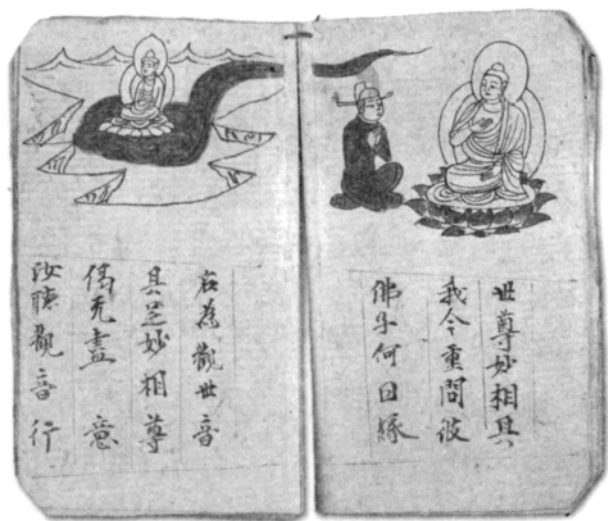 世尊妙相具
我今重問彼
佛子何因緣
名為觀世音
具足妙相尊
偈无盡意
汝聽觀音行